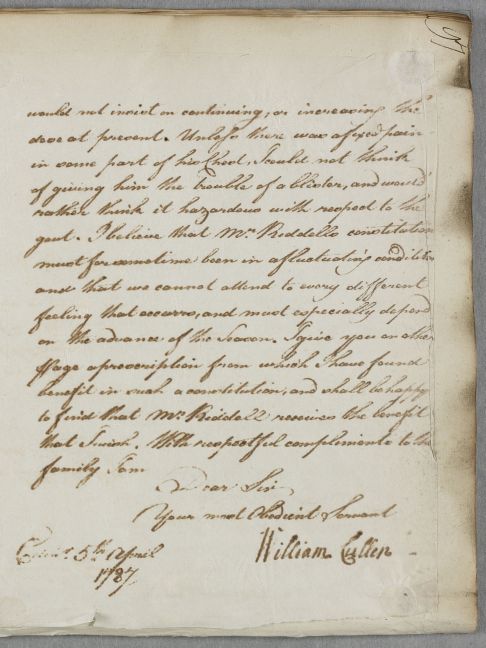 would not insist on continuing, or increasing the
dose at present. Unless there was a fixed pain
in some part of his Chest, I could not think
of giving him the trouble of a blister, and would
rather think it hazardous with respect to the
gout. I believe that Mr. Riddells constitution
must for sometime been in a fluctuating condition
and that we cannot attend to every different
feeling that occurrs, and must especially depend
on the advance of the Season. I give you on other
Page a prescription from which I have found
benefit in such a constitution, and shall be happy
to find that Mr. Riddell receives the benefit
that I wish. With respectful compliments to the
family I am
Dear Sir,
Your most Obedient Servant
William Cullen
5th April
1787